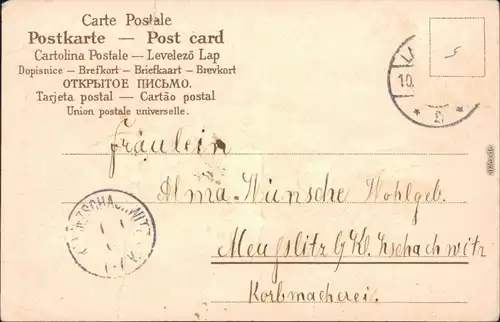 Carte Postale
Postkarte — Post card
Cartolina Postale — Levelező Lap
Dopisnice — Brefkort — Briefkaart — Brevkort
ОТКРЫТОЕ ПИСЬМО.
Tarjeta postal — Cartão postal
Union postale universelle.
10.
* b *
Fräulein
Alma Wünsche Wohlgeb.
Meußlitz b Kl. Zschachwitz
Korbmacherei.
ZSCHACHWITZ